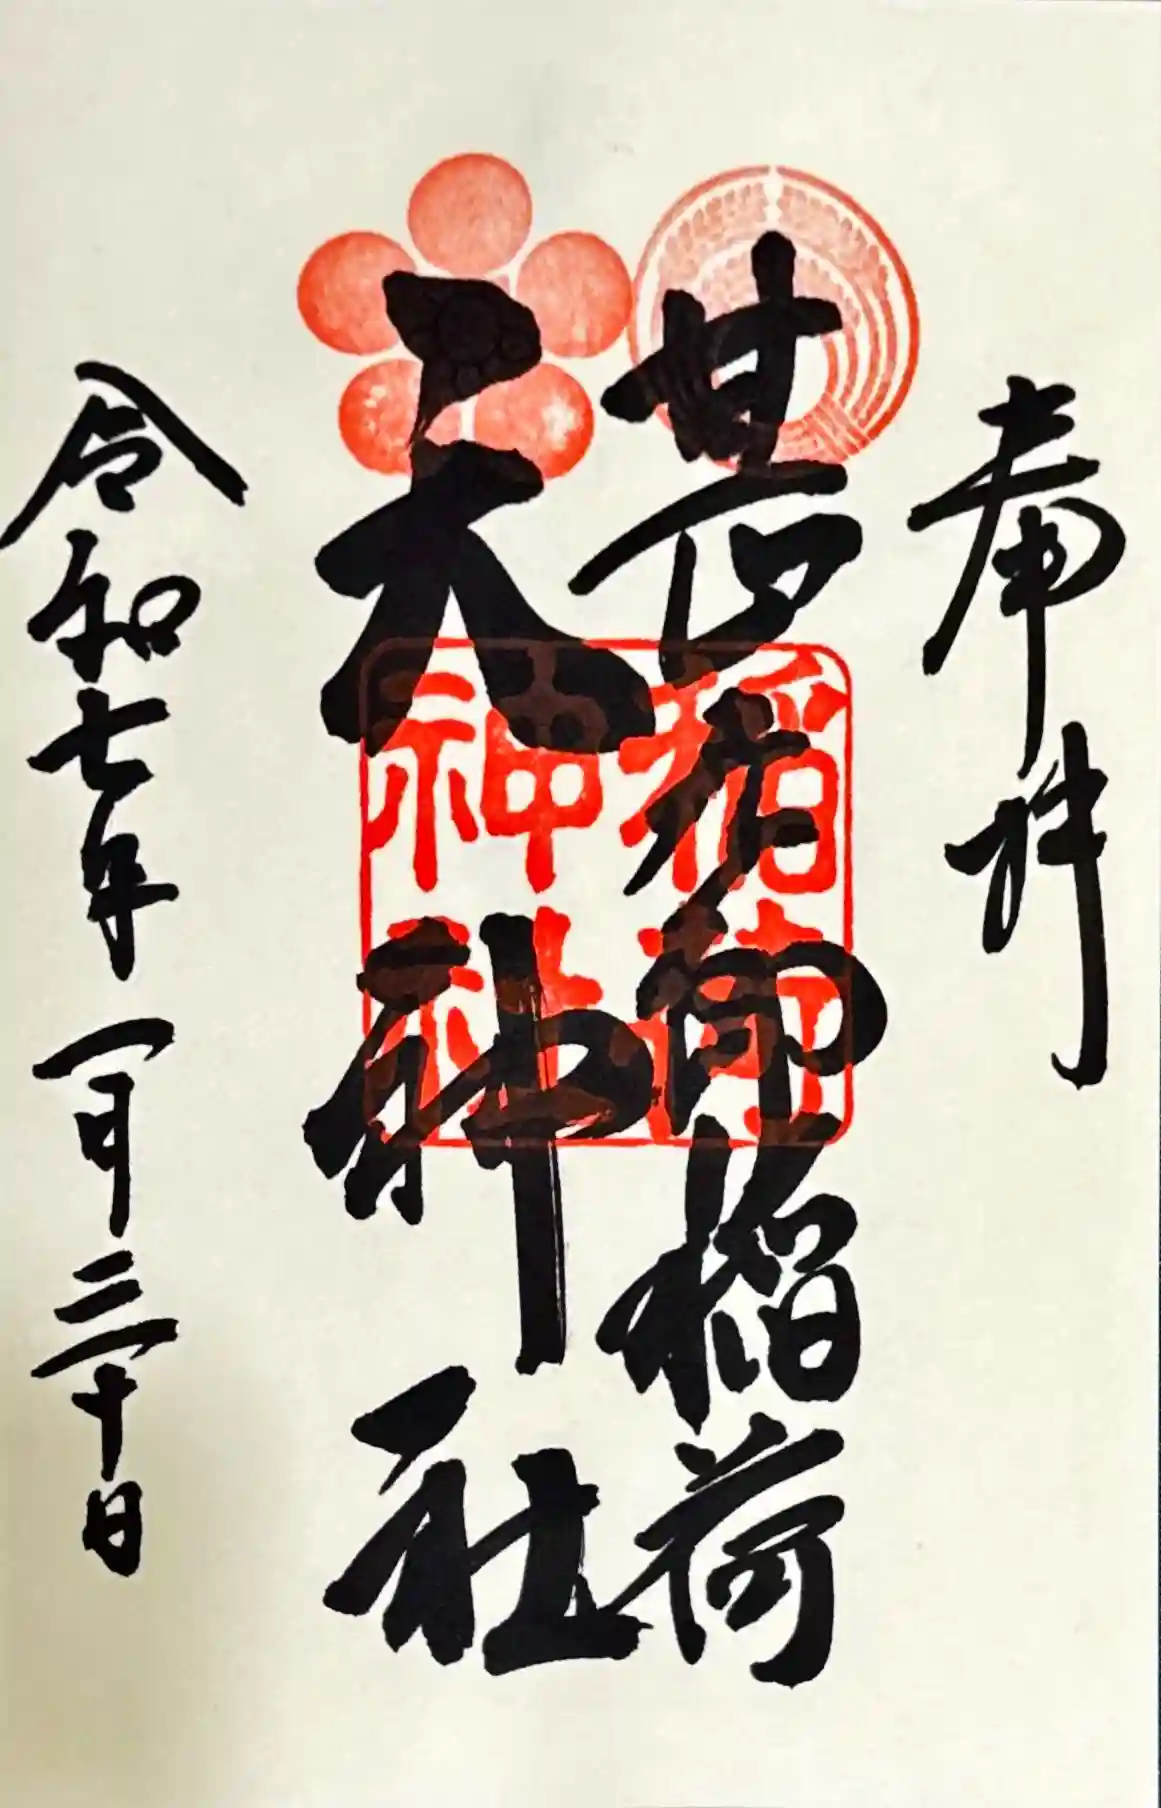 奉拝
稲荷
天神社
稲荷
神社
令和七年一月三十日